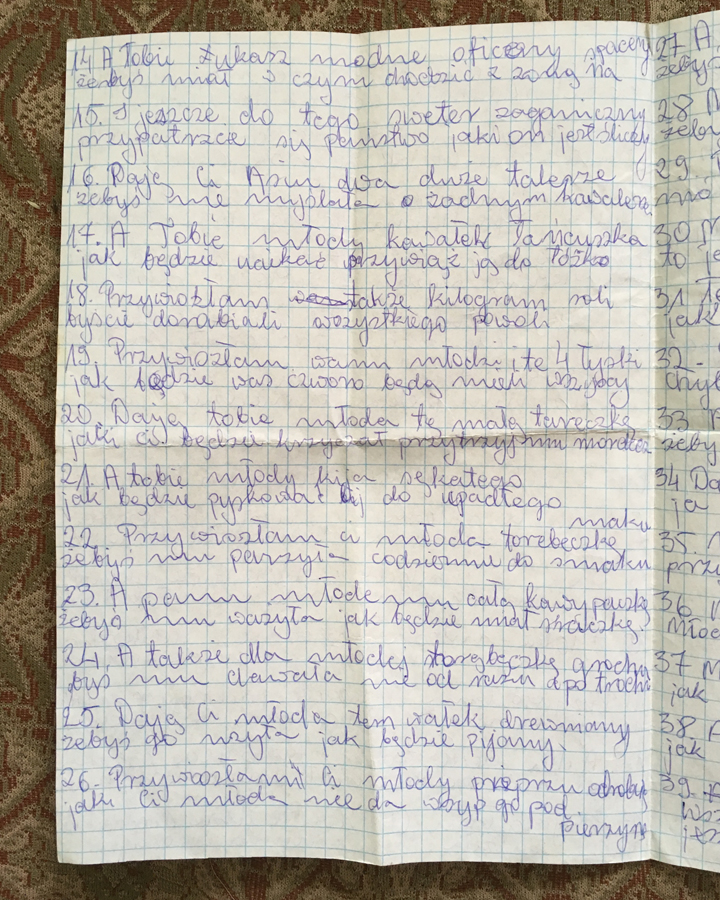 14 A Tobie Łukasz modne oficeny spacery
żebyś miał w czym chodzić z żoną na
15. I jeszcze do tego sweter zagraniczny
przypatrzcie się państwo jaki on jest śliczny
16. Daję Ci Asiu dwa duże talerze
żebyś nie myślała o żadnym kawalerze
17. A Tobie młody kawałek łańcuszka
jak będzie uciekać przywiąż ją do łóżka
18. Przywiozłam także kilogram soli
byście dorabiali wszystkiego powoli
19. Przywiozłam wam młodzi te 4 łyżki
jak będzie was czworo będą mieli wszyscy
20. Daję tobie młoda tę małą tareczkę
jak ci będzie krzyczał przytrzyj mu mordeczkę
21. A tobie młody kija sękatego
jak będzie pyskować bij do upadłego
22. Przywiozłam ci młoda torebeczkę maku
żebyś mu parzyła codziennie do smaku
23. A panu młodemu całą kawy paczkę
żebyś mu warzyła jak będzie miał sraczkę
24. A także dla młodej torebeczkę grochu
byś mu dawała nie od razu a po trochu
25. Daję Ci młoda ten wałek drewniany
żebyś go użyła jak będzie pijany.
26. Przywiozłam Ci młody pieprzu odrobinę
jak Ci młoda nie da wsyp go pod
pierzynę
27 A
żebyś
28
żeby
29.
30
to je
31
jak
32.
33
żeby
34 Da
ja
35.
przy
36
młod
37
jak
38. A
jak
39.